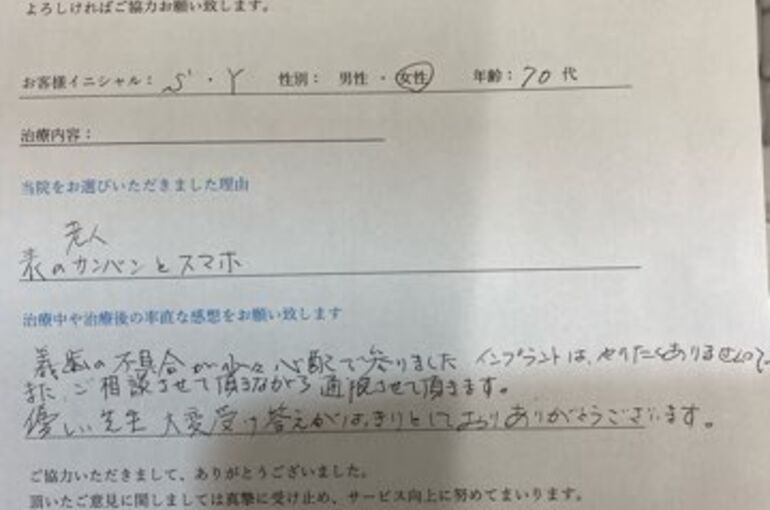 よろしければご協力お願い致します。
お客様イニシャル： S・Y 性別： 男性 ・ 女性 年齢：70 代
治療内容：
当院をお選びいただきました理由
老人
表のカンバンとスマホ
治療中や治療後の率直な感想をお願い致します
義歯の不具合が少々心配で参りました インプラントは、やりたくありませんので、
また、ご相談させて頂きながら通院させて頂きます。
優しい先生 大変受け答えがはっきりとしておりありがとうございます。
ご協力いただきまして、ありがとうございました。
頂いたご意見に関しましては真摯に受け止め、サービス向上に努めてまいります。